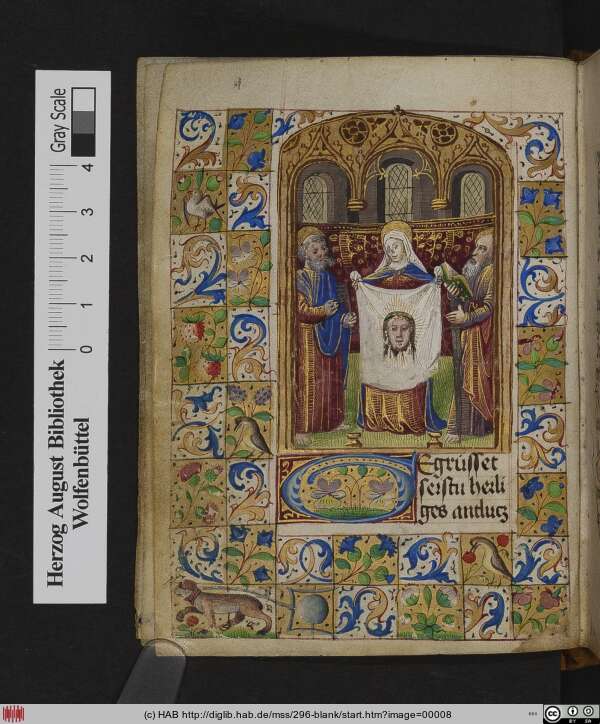 Herzog August Bibliothek
Wolfenbüttel
Gray Scale
0 1 2 3 4
Egrüsset
seistu heili
ges antlutz
(c) HAB http://diglib.hab.de/mss/296-blank/start.htm?image=00008
cc BY SA